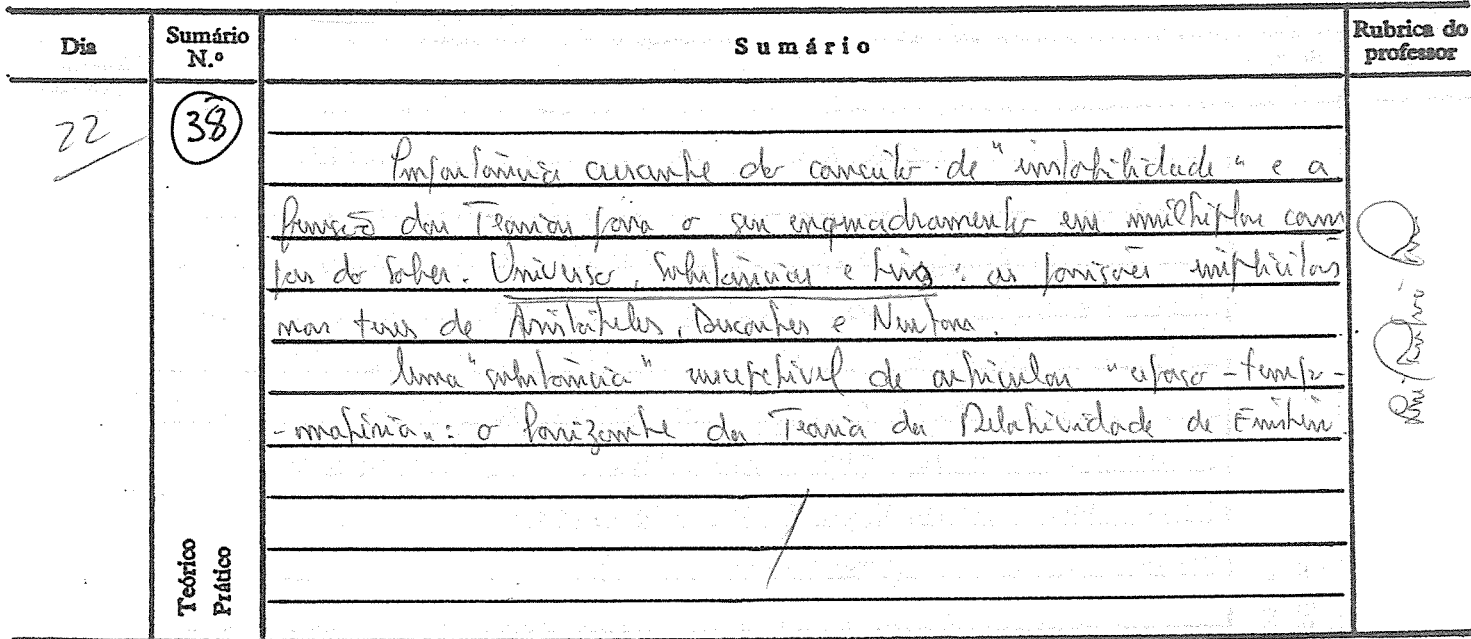 Dia
Sumário N.º
Sumário
Rubrica do professor
22
38
Importância crescente do conceito de "instabilidade" e a
tensão das Teorias para o seu enquadramento em múltiplos cam
pos do Saber. Universo, Substâncias e : as posições implícitas
nas teses de Aristóteles, Descartes e Newton.
Uma "substância" susceptível de articular "espaço-tempo-
-matéria": o horizonte da Teoria da Relatividade de Einstein.
Teórico
Prático